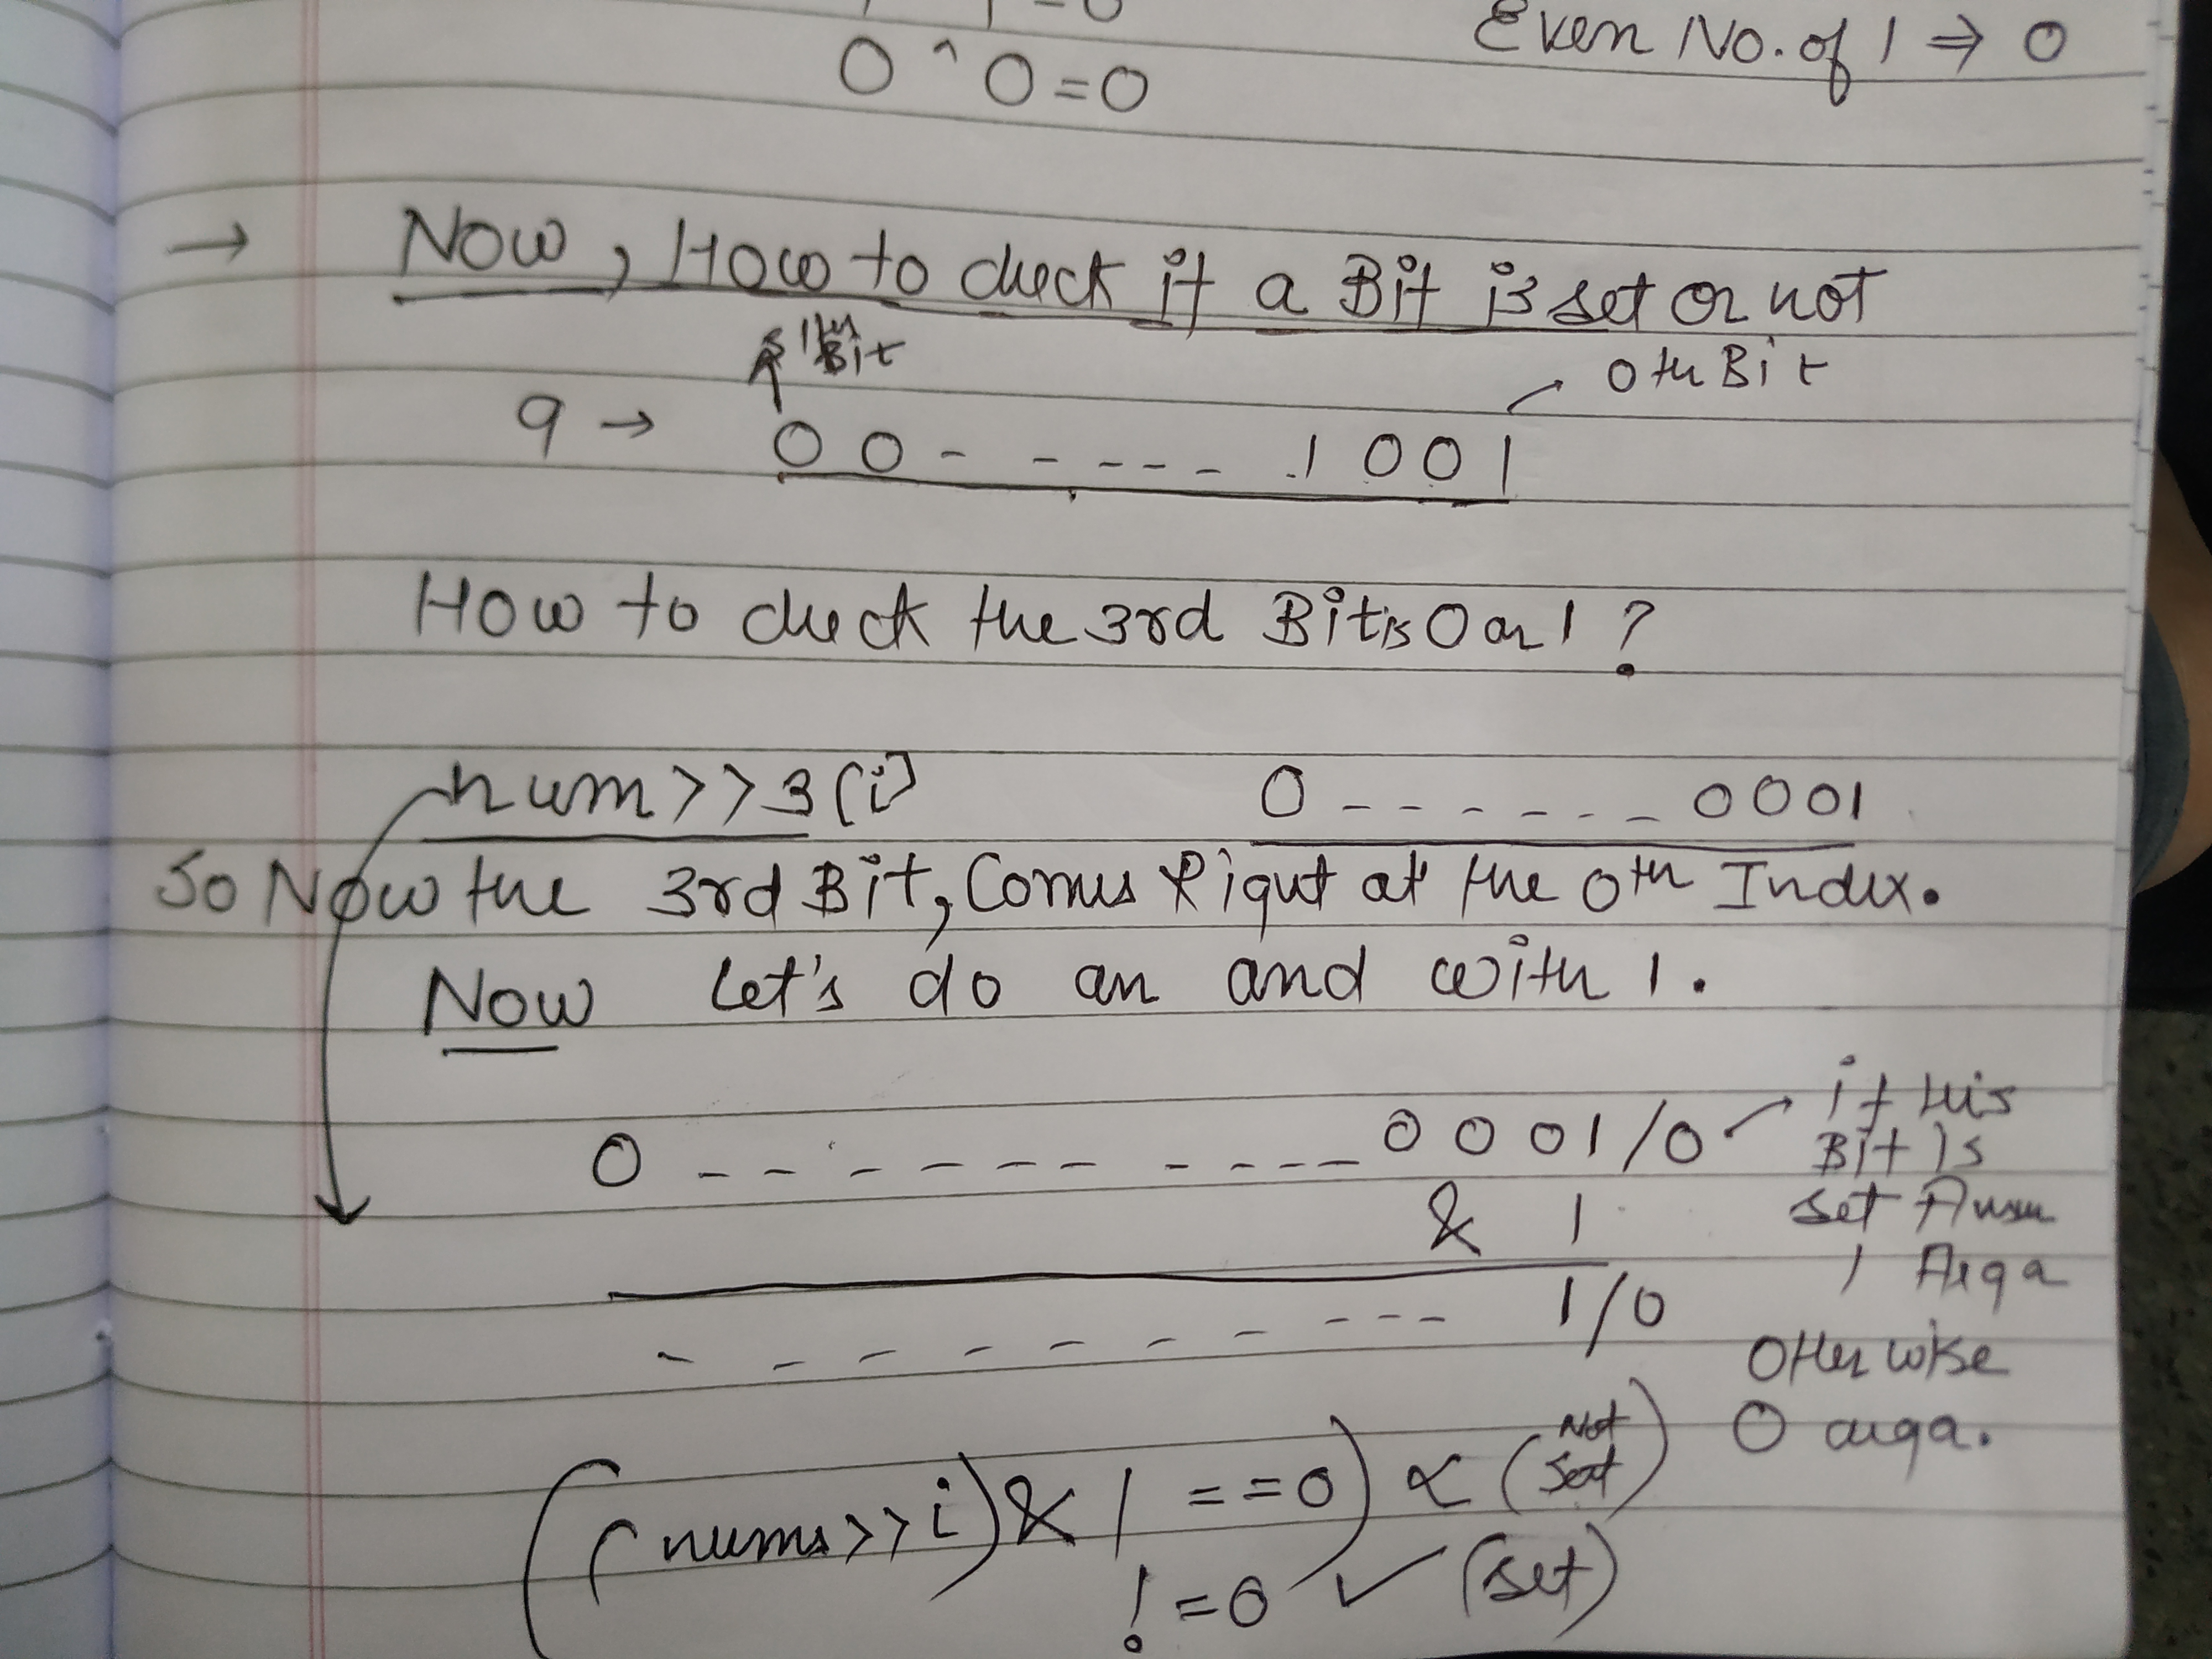 = 0
0 ^ 0 = 0
Even No. of 1 ⇒ 0
→ Now, How to check if a Bit is set or not
31st Bit
0th Bit
9 → 0 0 - - - - - - 1 0 0 1
How to check the 3rd Bit is 0 or 1 ?
num >> 3 (i) 0 - - - - - - 0 0 0 1
So Now the 3rd Bit, Comes Right at the 0th Index.
Now Let's do an and with 1.
0 - - - - - - - - - - 0 0 0 1/0
& 1
- - - - - - - - - - 1/0
if this
Bit is
set Answer
1 Aega
Otherwise
0 aega.
((nums >> i) & 1 == 0) × (Not Set)
!= 0 ✓ (set)